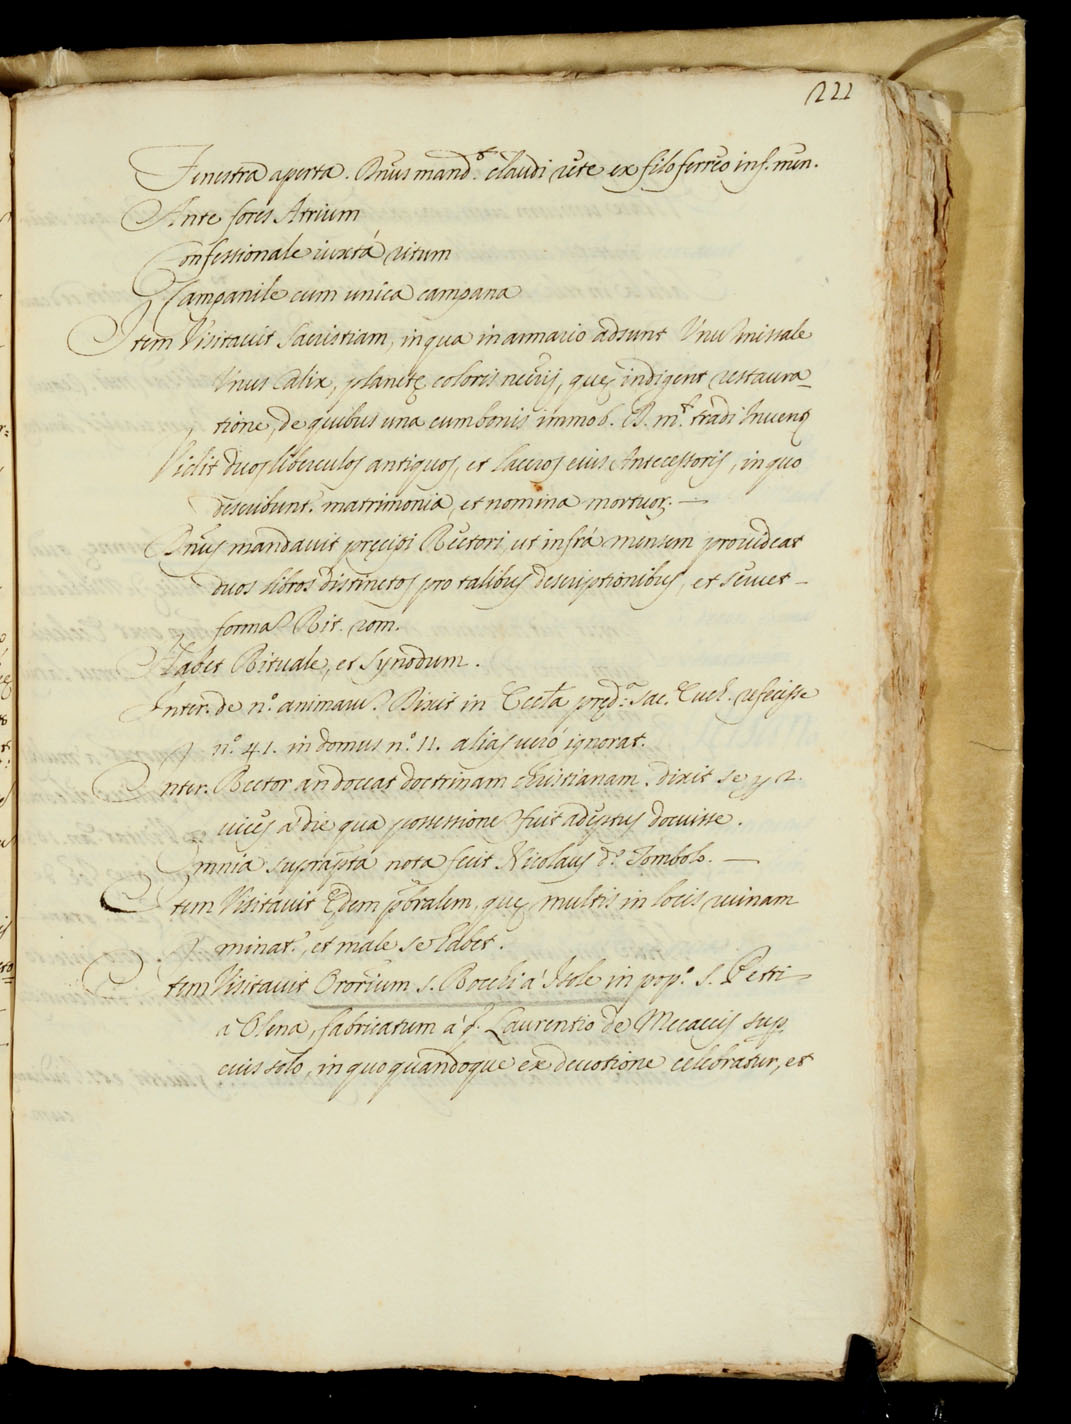 222
Fenestra aperta. Dnus mand.t claudi rete ex filo ferreo inf. men.
Ante fores Atrium
Confessionale iuxtà ritum
Campanile cum unica campana
Item Visitauit Sacristiam, in qua in armario adsunt Unu missale
Unus Calix, planetę coloris necrij, quę indigent restaura-
tione, de quibus una cum bonis immob. D. m.t tradi Inuent
Vidit duos liberculos antiquos, et laceros eius Antecessoris, in quo
describunt. matrimonia, et nomina mortuor. —
Dnus mandauit pręcipi Rectori, ut infrà mensem prouideat
duos libros distinctos pro talibus descriptionibus, et seruet
forma Rit. rom.
Habet Rituale, et Synodum.
Inter. de n.o animaru. Dixit in Eccla pręd.a Sac. Euch. refecisse
n.o 41. in domus n.o 11. alias uerò ignorat.
Inter. Rector an doceat doctrinam christianam. dixit se
uices à die qua possessione fuit adeptus docuisse.
Omnia suprapta nota fecit Nicolaus d.o Tombolo. —
Item Visitauit Ędem pbralem, quę multis in locis ruinam
minat., et male se habet.
Item Visitauit Ororium S. Rocchi à Isole in pop.o S. Petri
a Olena, fabricatum à f. Laurentio de Mecaccis sup.
eius solo, in quo quandoque ex deuotione celebratur, et